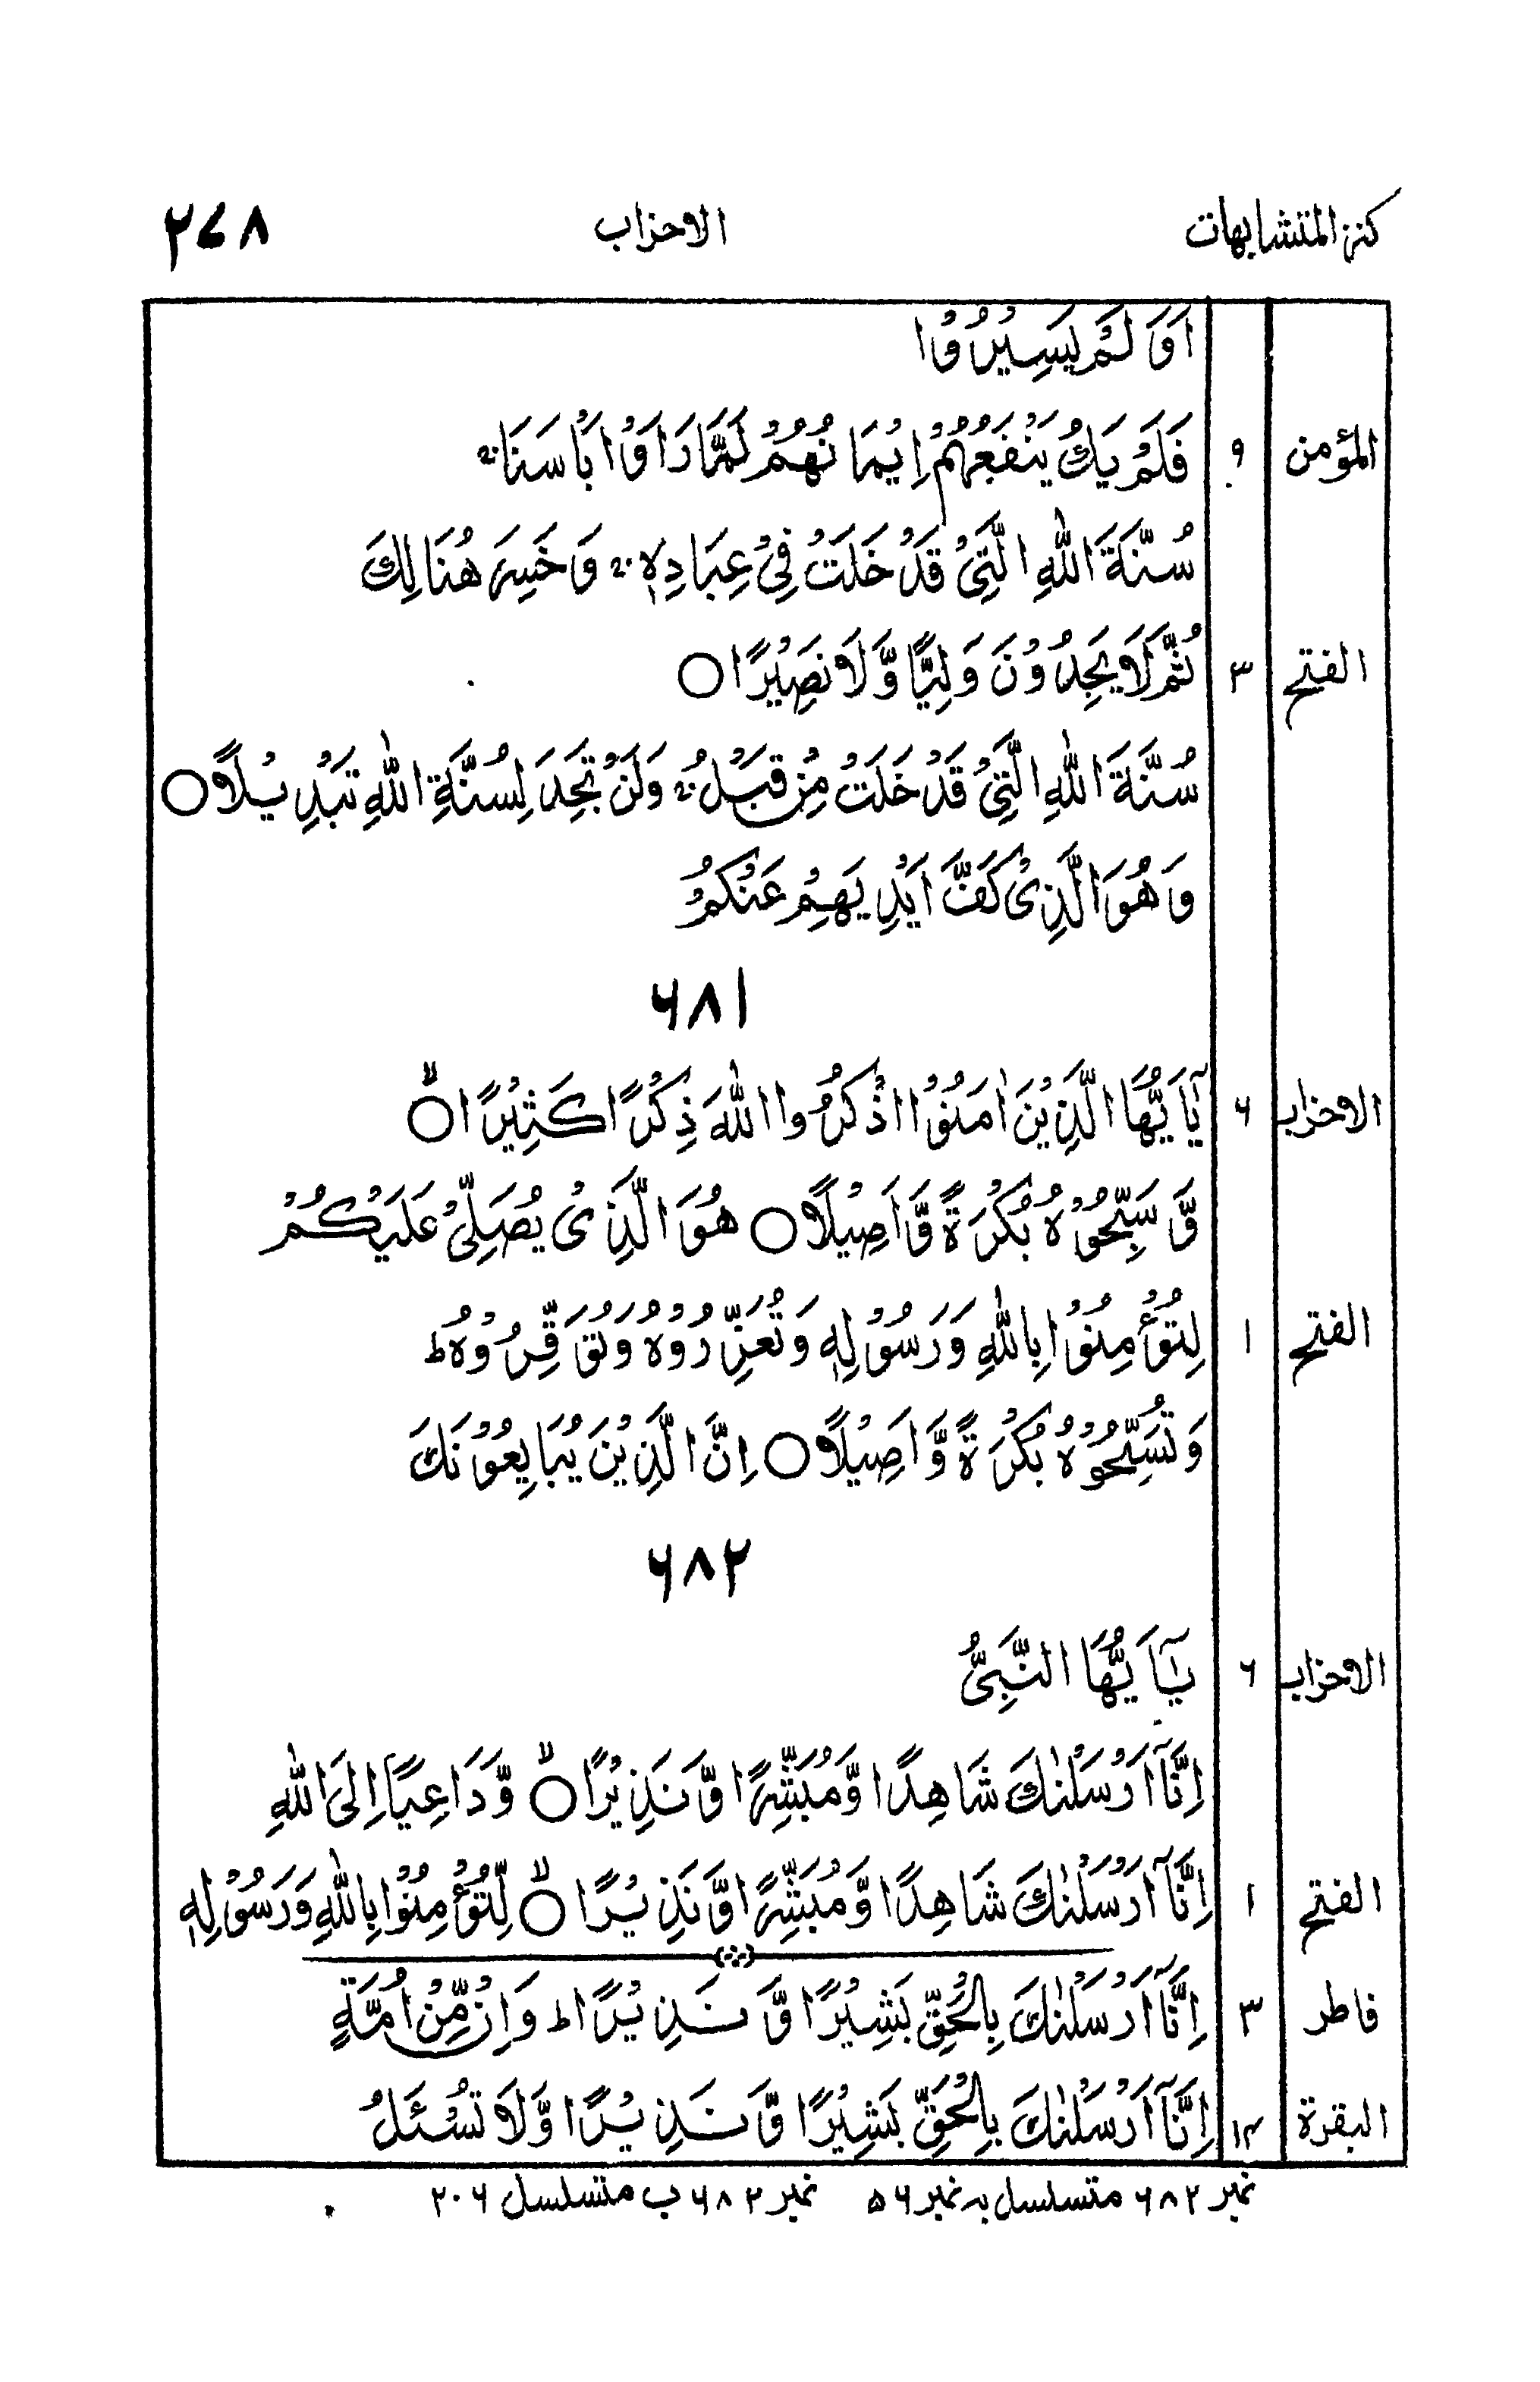 كنز المتشابهات الاحزاب ۲۷۸
اَوَ لَمْ يَسِيْرُوْا
المؤمن ۹ فَلَمْ يَكُ يَنْفَعُهُمْ اِيْمَانُهُمْ لَمَّا رَاَوْا بَاْسَنَا ؕ
سُنَّةَ اللّٰهِ الَّتِىْ قَدْ خَلَتْ فِىْ عِبَادِهٖ ۚ وَ خَسِرَ هُنَالِكَ
الفتح ۳ ثُمَّ لَا يَجِدُوْنَ وَلِيًّا وَّلَا نَصِيْرًا ○
سُنَّةَ اللّٰهِ الَّتِىْ قَدْ خَلَتْ مِنْ قَبْلُ ۚ وَلَنْ تَجِدَ لِسُنَّةِ اللّٰهِ تَبْدِيْلًا ○
وَهُوَ الَّذِىْ كَفَّ اَيْدِيَهُمْ عَنْكُمْ
۶۸۱
الاحزاب ۶ يٰۤاَيُّهَا الَّذِيْنَ اٰمَنُوْا اذْكُرُوا اللّٰهَ ذِكْرًا كَثِيْرًا ○ۙ
وَّ سَبِّحُوْهُ بُكْرَةً وَّاَصِيْلًا ○ هُوَ الَّذِىْ يُصَلِّىْ عَلَيْكُمْ
الفتح ۱ لِتُؤْمِنُوْا بِاللّٰهِ وَرَسُوْلِهٖ وَتُعَزِّرُوْهُ وَتُوَقِّرُوْهُ ط
وَتُسَبِّحُوْهُ بُكْرَةً وَّاَصِيْلًا ○ اِنَّ الَّذِيْنَ يُبَايِعُوْنَكَ
۶۸۲
الاحزاب ۶ يٰۤاَيُّهَا النَّبِىُّ
اِنَّاۤ اَرْسَلْنٰكَ شَاهِدًا وَّمُبَشِّرًا وَّنَذِيْرًا ○ۙ وَّدَاعِيًا اِلَى اللّٰهِ
الفتح ۱ اِنَّاۤ اَرْسَلْنٰكَ شَاهِدًا وَّمُبَشِّرًا وَّنَذِيْرًا ○ۙ لِّتُؤْمِنُوْا بِاللّٰهِ وَرَسُوْلِهٖ
فاطر ۳ اِنَّاۤ اَرْسَلْنٰكَ بِالْحَقِّ بَشِيْرًا وَّنَذِيْرًا ط وَاِنْ مِّنْ اُمَّةٍ
البقرة ۱۴ اِنَّاۤ اَرْسَلْنٰكَ بِالْحَقِّ بَشِيْرًا وَّنَذِيْرًا وَّلَا تُسْئَلُ
نمبر ۶۸۲ متسلسل بہ نمبر ۵۶ نمبر ۶۸۲ ب متسلسل ۲۰۶